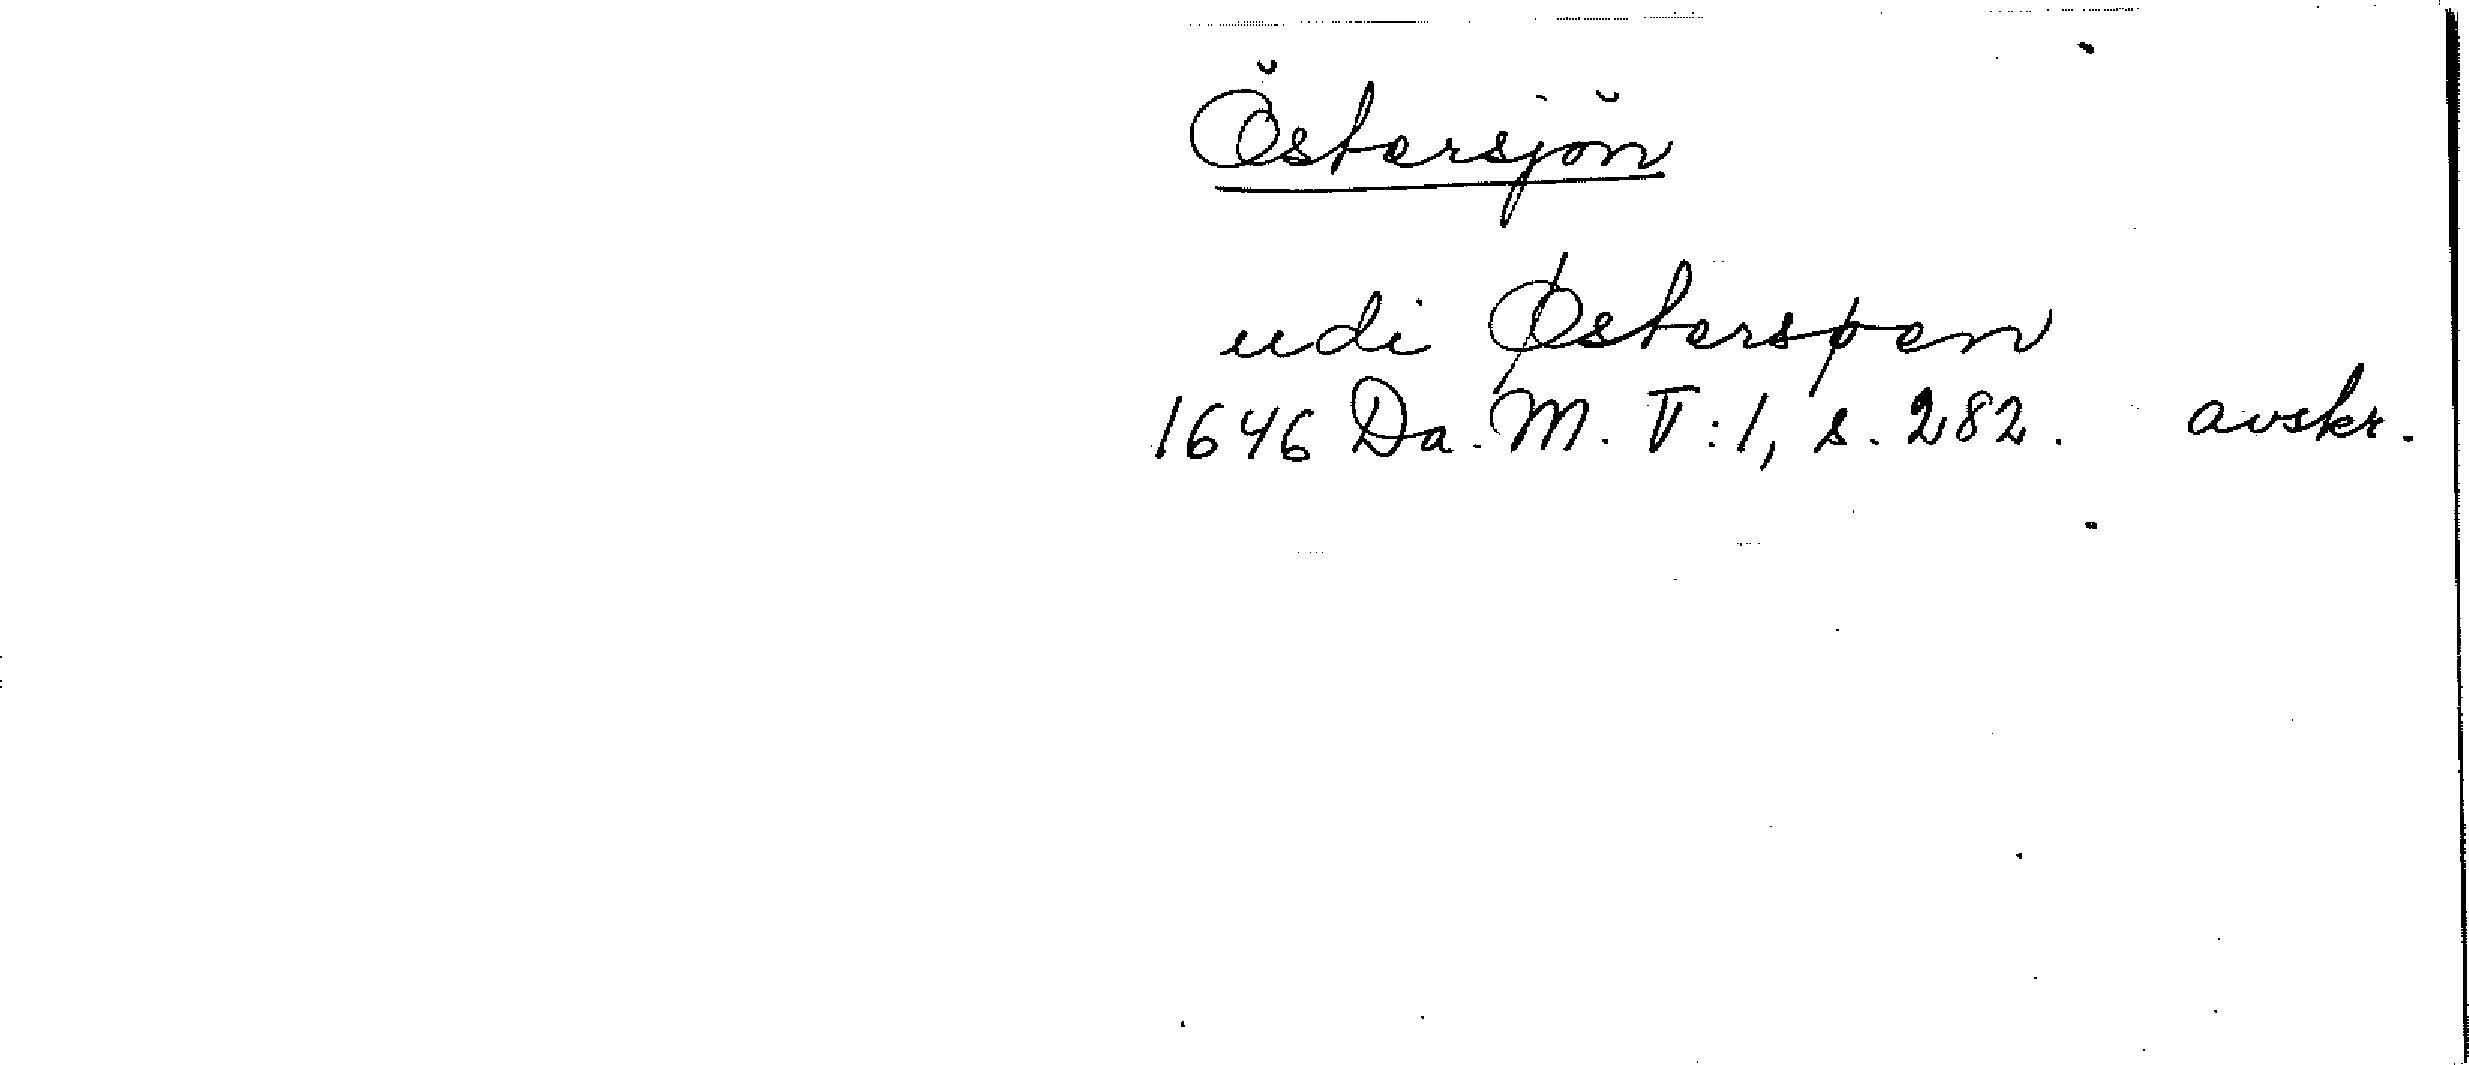 Östersjön
udi Østersøen
1646 Da. M. V:1, s. 282. avskr.